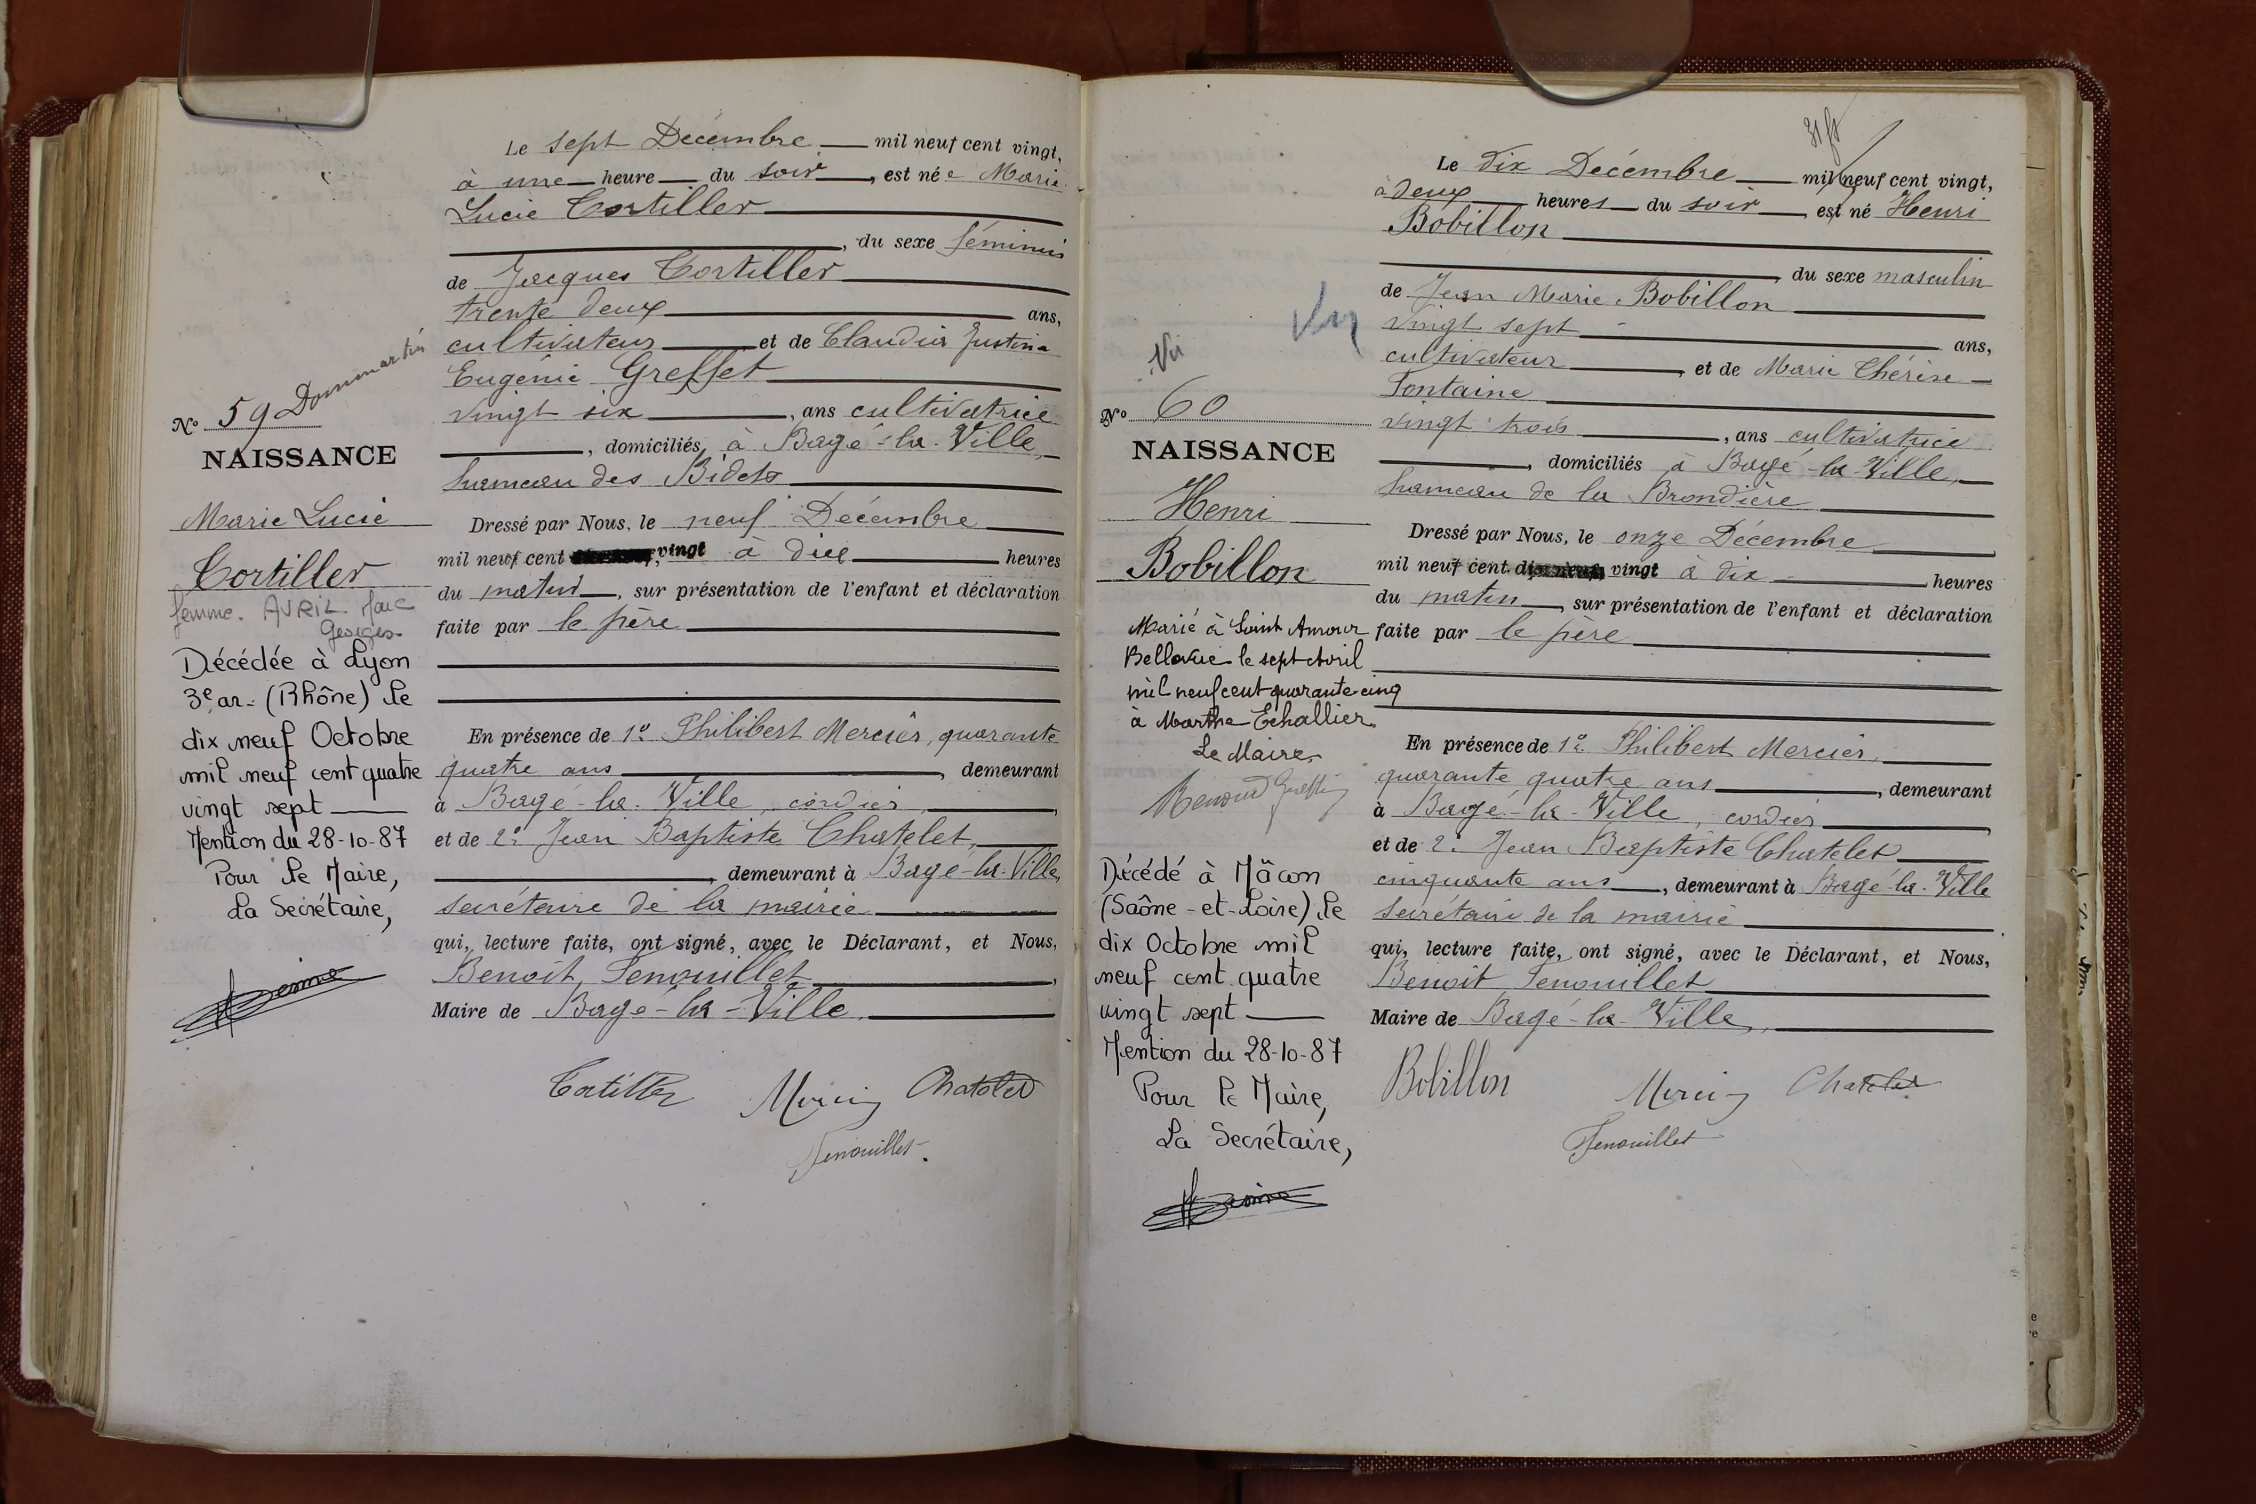 Le sept Décembre mil neuf cent vingt,
à une heure du soir, est née Marie
Lucie Tortiller
, du sexe féminin
de Jacques Tortiller
trente deux ans,
cultivateur et de Claudia Justine
Eugénie Greffet
vingt six, ans cultivatrice
, domiciliés à Bagé-la-Ville,
hameau des Bidets
Dressé par Nous, le neuf Décembre
mil neuf cent vingt à dix heures
du matin, sur présentation de l'enfant et déclaration
faite par le père
En présence de 1º Philibert Mercier, quarante
quatre ans, demeurant
à Bagé-la-Ville, cordier,
et de 2º Jean Baptiste Chatelet,
, demeurant à Bagé-la-Ville,
secrétaire de la mairie
qui, lecture faite, ont signé, avec le Déclarant, et Nous,
Benoit Fenouillet,
Maire de Bagé-la-Ville
Tortiller Mercier Chatelet
Fenouillet
Nº 59 Dommartin
NAISSANCE
Marie Lucie
Tortiller
femme AVRIL Marc
Georges
Décédée à Lyon
3e ar. (Rhône) le
dix neuf Octobre
mil neuf cent quatre
vingt sept
Mention du 28-10-87
Pour le Maire,
La Secrétaire,
Le dix Décembre mil neuf cent vingt,
à deux heures du soir, est né Henri
Bobillon
, du sexe masculin
de Jean Marie Bobillon
vingt sept ans,
cultivateur, et de Marie Thérèse
Fontaine
vingt trois, ans cultivatrice
, domiciliés à Bagé-la-Ville,
hameau de la Brondière
Dressé par Nous, le onze Décembre
mil neuf cent dix-neuf vingt à dix heures
du matin, sur présentation de l'enfant et déclaration
faite par le père
En présence de 1º Philibert Mercier,
quarante quatre ans, demeurant
à Bagé-la-Ville, cordier,
et de 2º Jean Baptiste Chatelet
cinquante ans, demeurant à Bagé-la-Ville
secrétaire de la mairie
qui, lecture faite, ont signé, avec le Déclarant, et Nous,
Benoit Fenouillet
Maire de Bagé-la-Ville,
Bobillon Mercier Chatelet
Fenouillet
Vu
Nº 60
NAISSANCE
Henri
Bobillon
Marié à Saint Amour
Bellevue le sept Avril
mil neuf cent quarante-cinq
à Marthe Echallier
Le Maire
Décédé à Mâcon
(Saône-et-Loire) le
dix Octobre mil
neuf cent quatre
vingt sept
Mention du 28-10-87
Pour le Maire,
La Secrétaire,